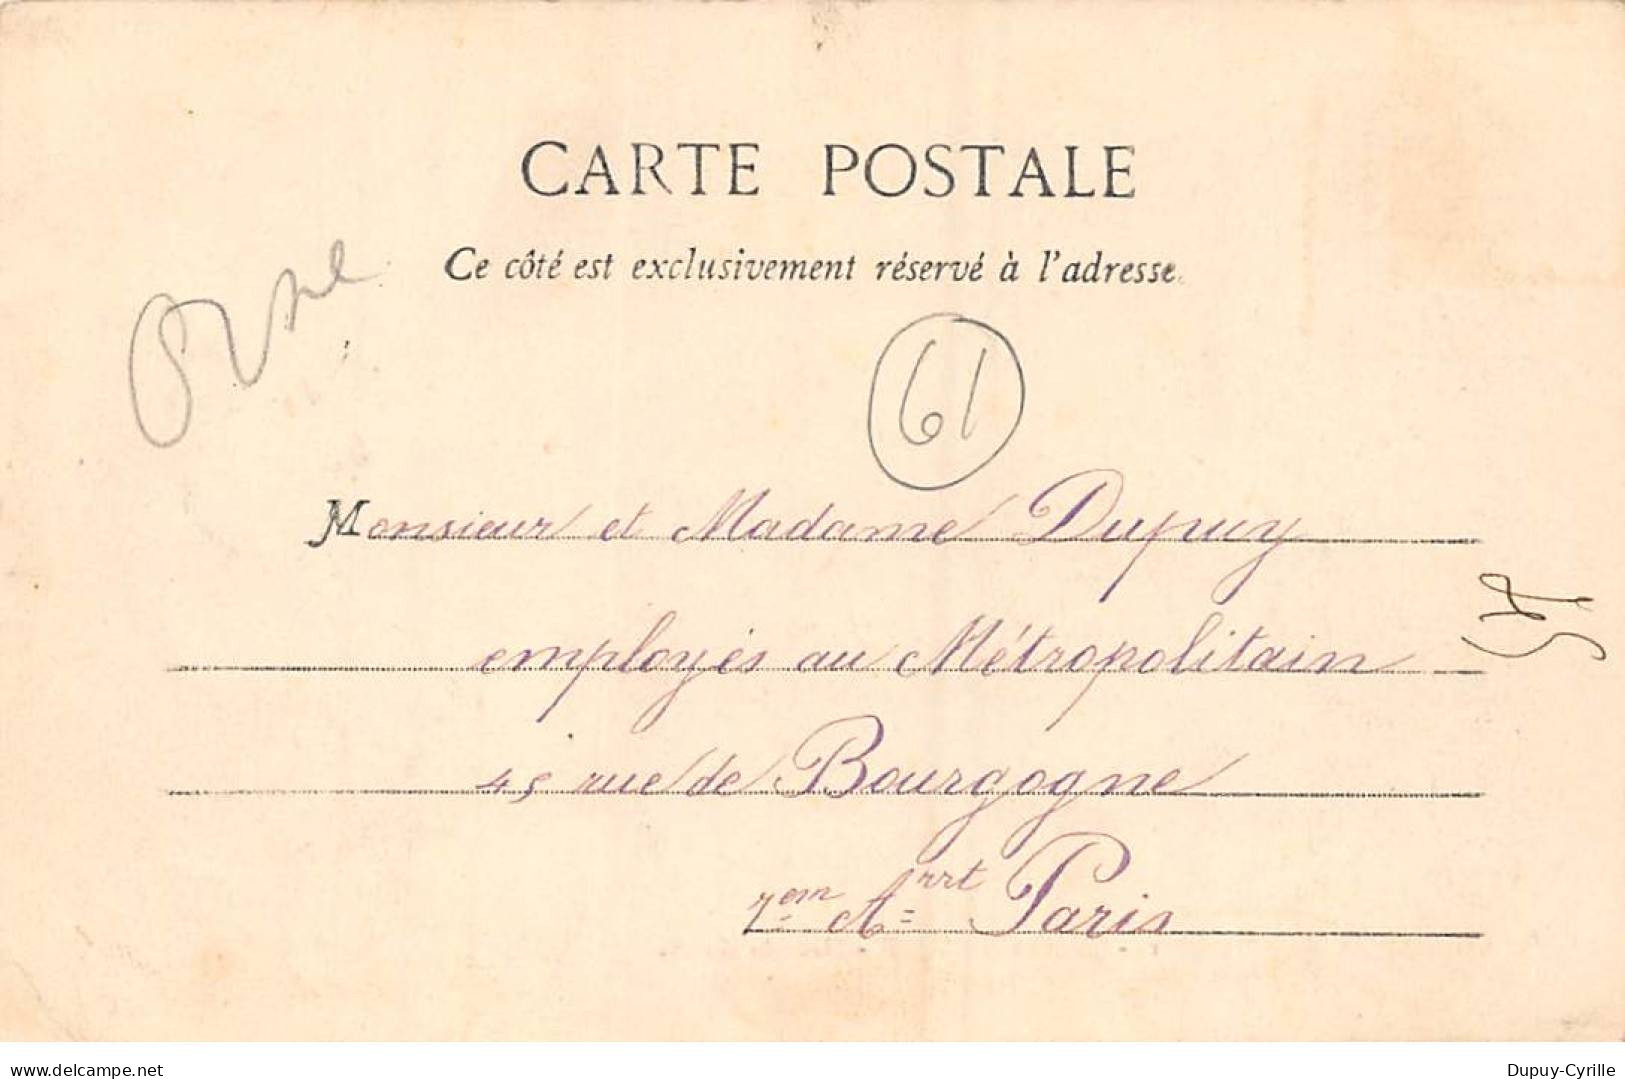 CARTE POSTALE
Ce côté est exclusivement réservé à l'adresse.
Orne
61
Monsieur et Madame Dupuy
employés au Métropolitain
45 rue de Bourgogne
7em Arrt Paris
delcampe.net
Dupuy-Cyrille